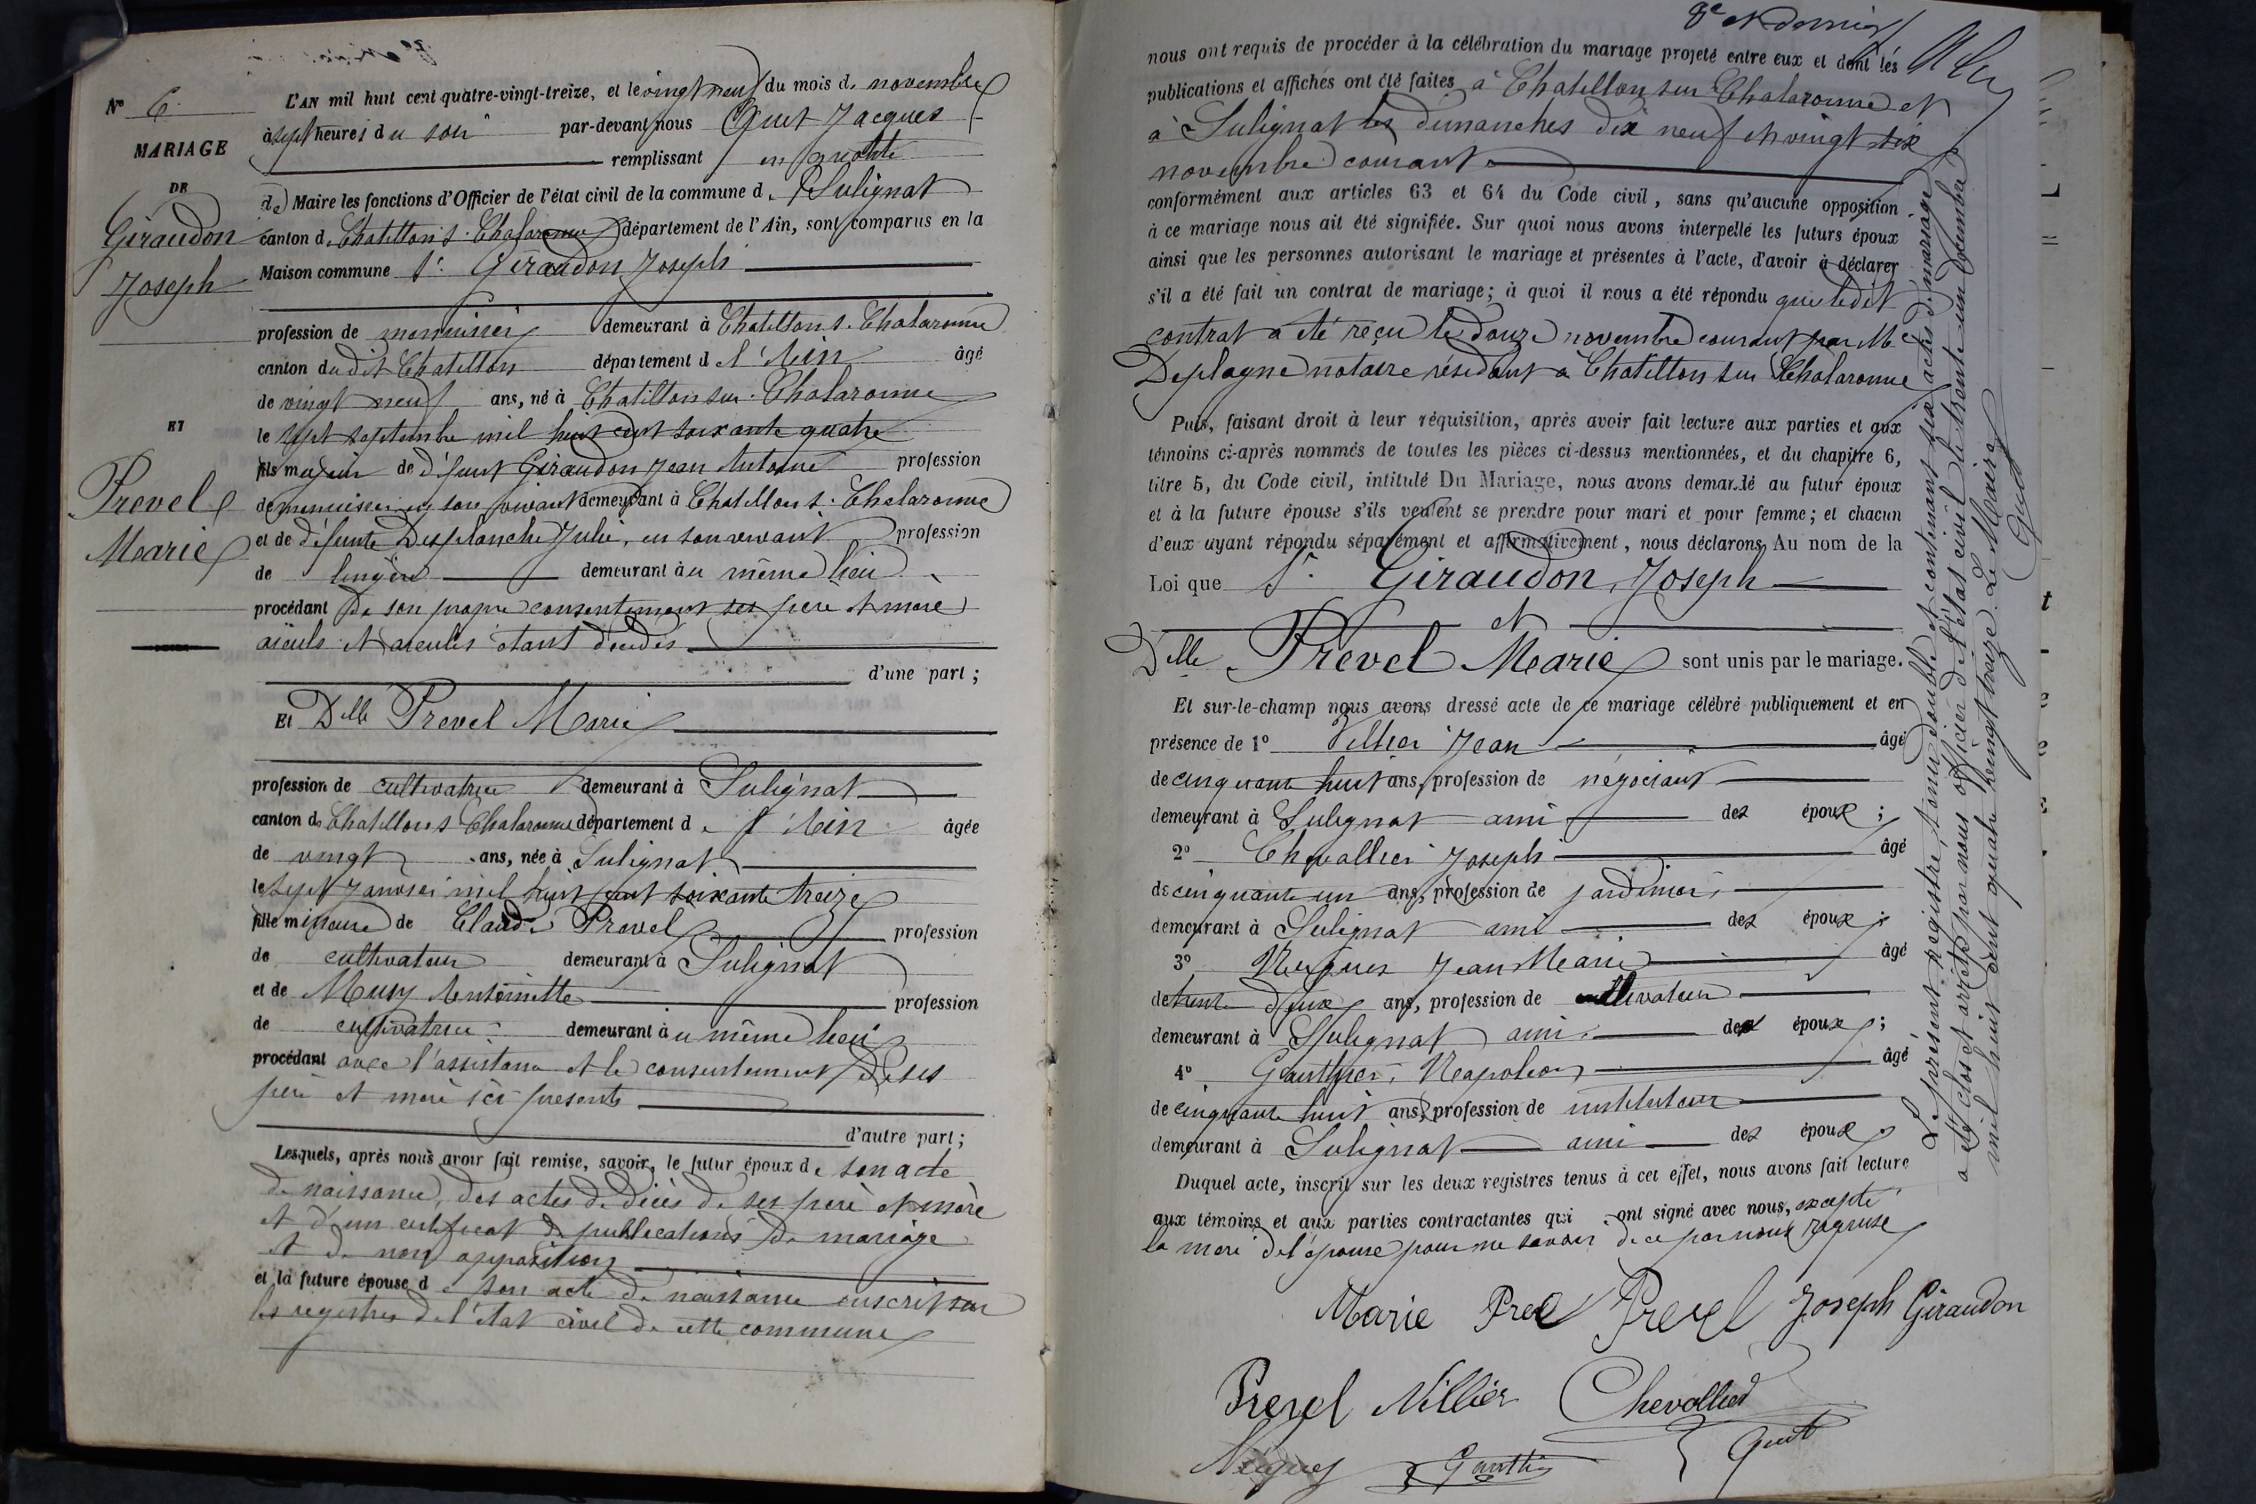 N° 6
MARIAGE
DE
Giraudon
Joseph
ET
Prevel
Marie
L'AN mil huit cent quatre-vingt-treize, et le vingt neuf du mois de novembre
à sept heures du soir par-devant nous Guit Jacques
remplissant en qualité
de Maire les fonctions d'Officier de l'état civil de la commune d Sulignat
canton de Chatillon s. Chalaronne département de l'Ain, sont comparus en la
Maison commune Sr. Giraudon Joseph
profession de menuisier demeurant à Chatillon s. Chalaronne
canton du dit Chatillon département de l'Ain âgé
de vingt neuf ans, né à Chatillon sur Chalaronne
le sept septembre mil huit cent soixante quatre
fils majeur de défunt Giraudon Jean Antoine profession
de menuisier en son vivant demeurant à Chatillon s. Chalaronne
et de défunte Desplanche Julie, en son vivant profession
de lingère demeurant au même lieu
procédant de son propre consentement ses père et mère
aïeuls et aïeules étant décédés
d'une part;
Et Delle Prevel Marie
profession de cultivatrice demeurant à Sulignat
canton de Chatillon s Chalaronne département de l'Ain âgée
de vingt ans, née à Sulignat
le sept janvier mil huit cent soixante treize
fille mineure de Claude Prevel profession
de cultivateur demeurant à Sulignat
et de Musy Antoinette profession
de cultivatrice demeurant au même lieu
procédant avec l'assistance et le consentement de ses
père et mère ici présents
d'autre part;
Lesquels, après nous avoir fait remise, savoir, le futur époux de son acte
de naissance, des actes de décès de ses père et mère
et d'un certificat de publications de mariage
et de non opposition
et la future épouse de son acte de naissance inscrit sur
les registres de l'état civil de cette commune
8e et dernier
nous ont requis de procéder à la célébration du mariage projeté entre eux et dont les
publications et affiches ont été faites à Chatillon sur Chalaronne et
à Sulignat les dimanches dix neuf et vingt six
novembre courant
conformément aux articles 63 et 64 du Code civil, sans qu'aucune opposition
à ce mariage nous ait été signifiée. Sur quoi nous avons interpellé les futurs époux
ainsi que les personnes autorisant le mariage et présentes à l'acte, d'avoir à déclarer
s'il a été fait un contrat de mariage; à quoi il nous a été répondu que ledit
contrat a été reçu le douze novembre courant par Me
Desplagne notaire résidant à Chatillon sur Chalaronne
Puis, faisant droit à leur réquisition, après avoir fait lecture aux parties et aux
témoins ci-après nommés de toutes les pièces ci-dessus mentionnées, et du chapitre 6,
titre 5, du Code civil, intitulé Du Mariage, nous avons demandé au futur époux
et à la future épouse s'ils veulent se prendre pour mari et pour femme; et chacun
d'eux ayant répondu séparément et affirmativement, nous déclarons Au nom de la
Loi que Sr. Giraudon Joseph
et
Delle Prevel Marie sont unis par le mariage.
Et sur-le-champ nous avons dressé acte de ce mariage célébré publiquement et en
présence de 1° Villier Jean âgé
de cinquante huit ans, profession de négociant
demeurant à Sulignat ami des époux;
2° Chevallier Joseph âgé
de cinquante un ans, profession de jardinier
demeurant à Sulignat ami des époux;
3° Nugues Jean Marie âgé
de trente deux ans, profession de cultivateur
demeurant à Sulignat ami des époux;
4° Gauthier Napoléon âgé
de cinquante huit ans, profession de instituteur
demeurant à Sulignat ami des époux
Duquel acte, inscrit sur les deux registres tenus à cet effet, nous avons fait lecture
aux témoins et aux parties contractantes qui ont signé avec nous, excepté
la mère de l'épouse pour ne savoir de ce par nous requise
Marie Prevel Prevel Joseph Giraudon
Prevel Villier Chevallier
Nugues Gauthier Guit
Le présent registre, tenu double et contenant six actes de mariage
a été clos et arrêté par nous officier de l'état civil le trente un décembre
mil huit cent quatre vingt treize. Le Maire
Guit